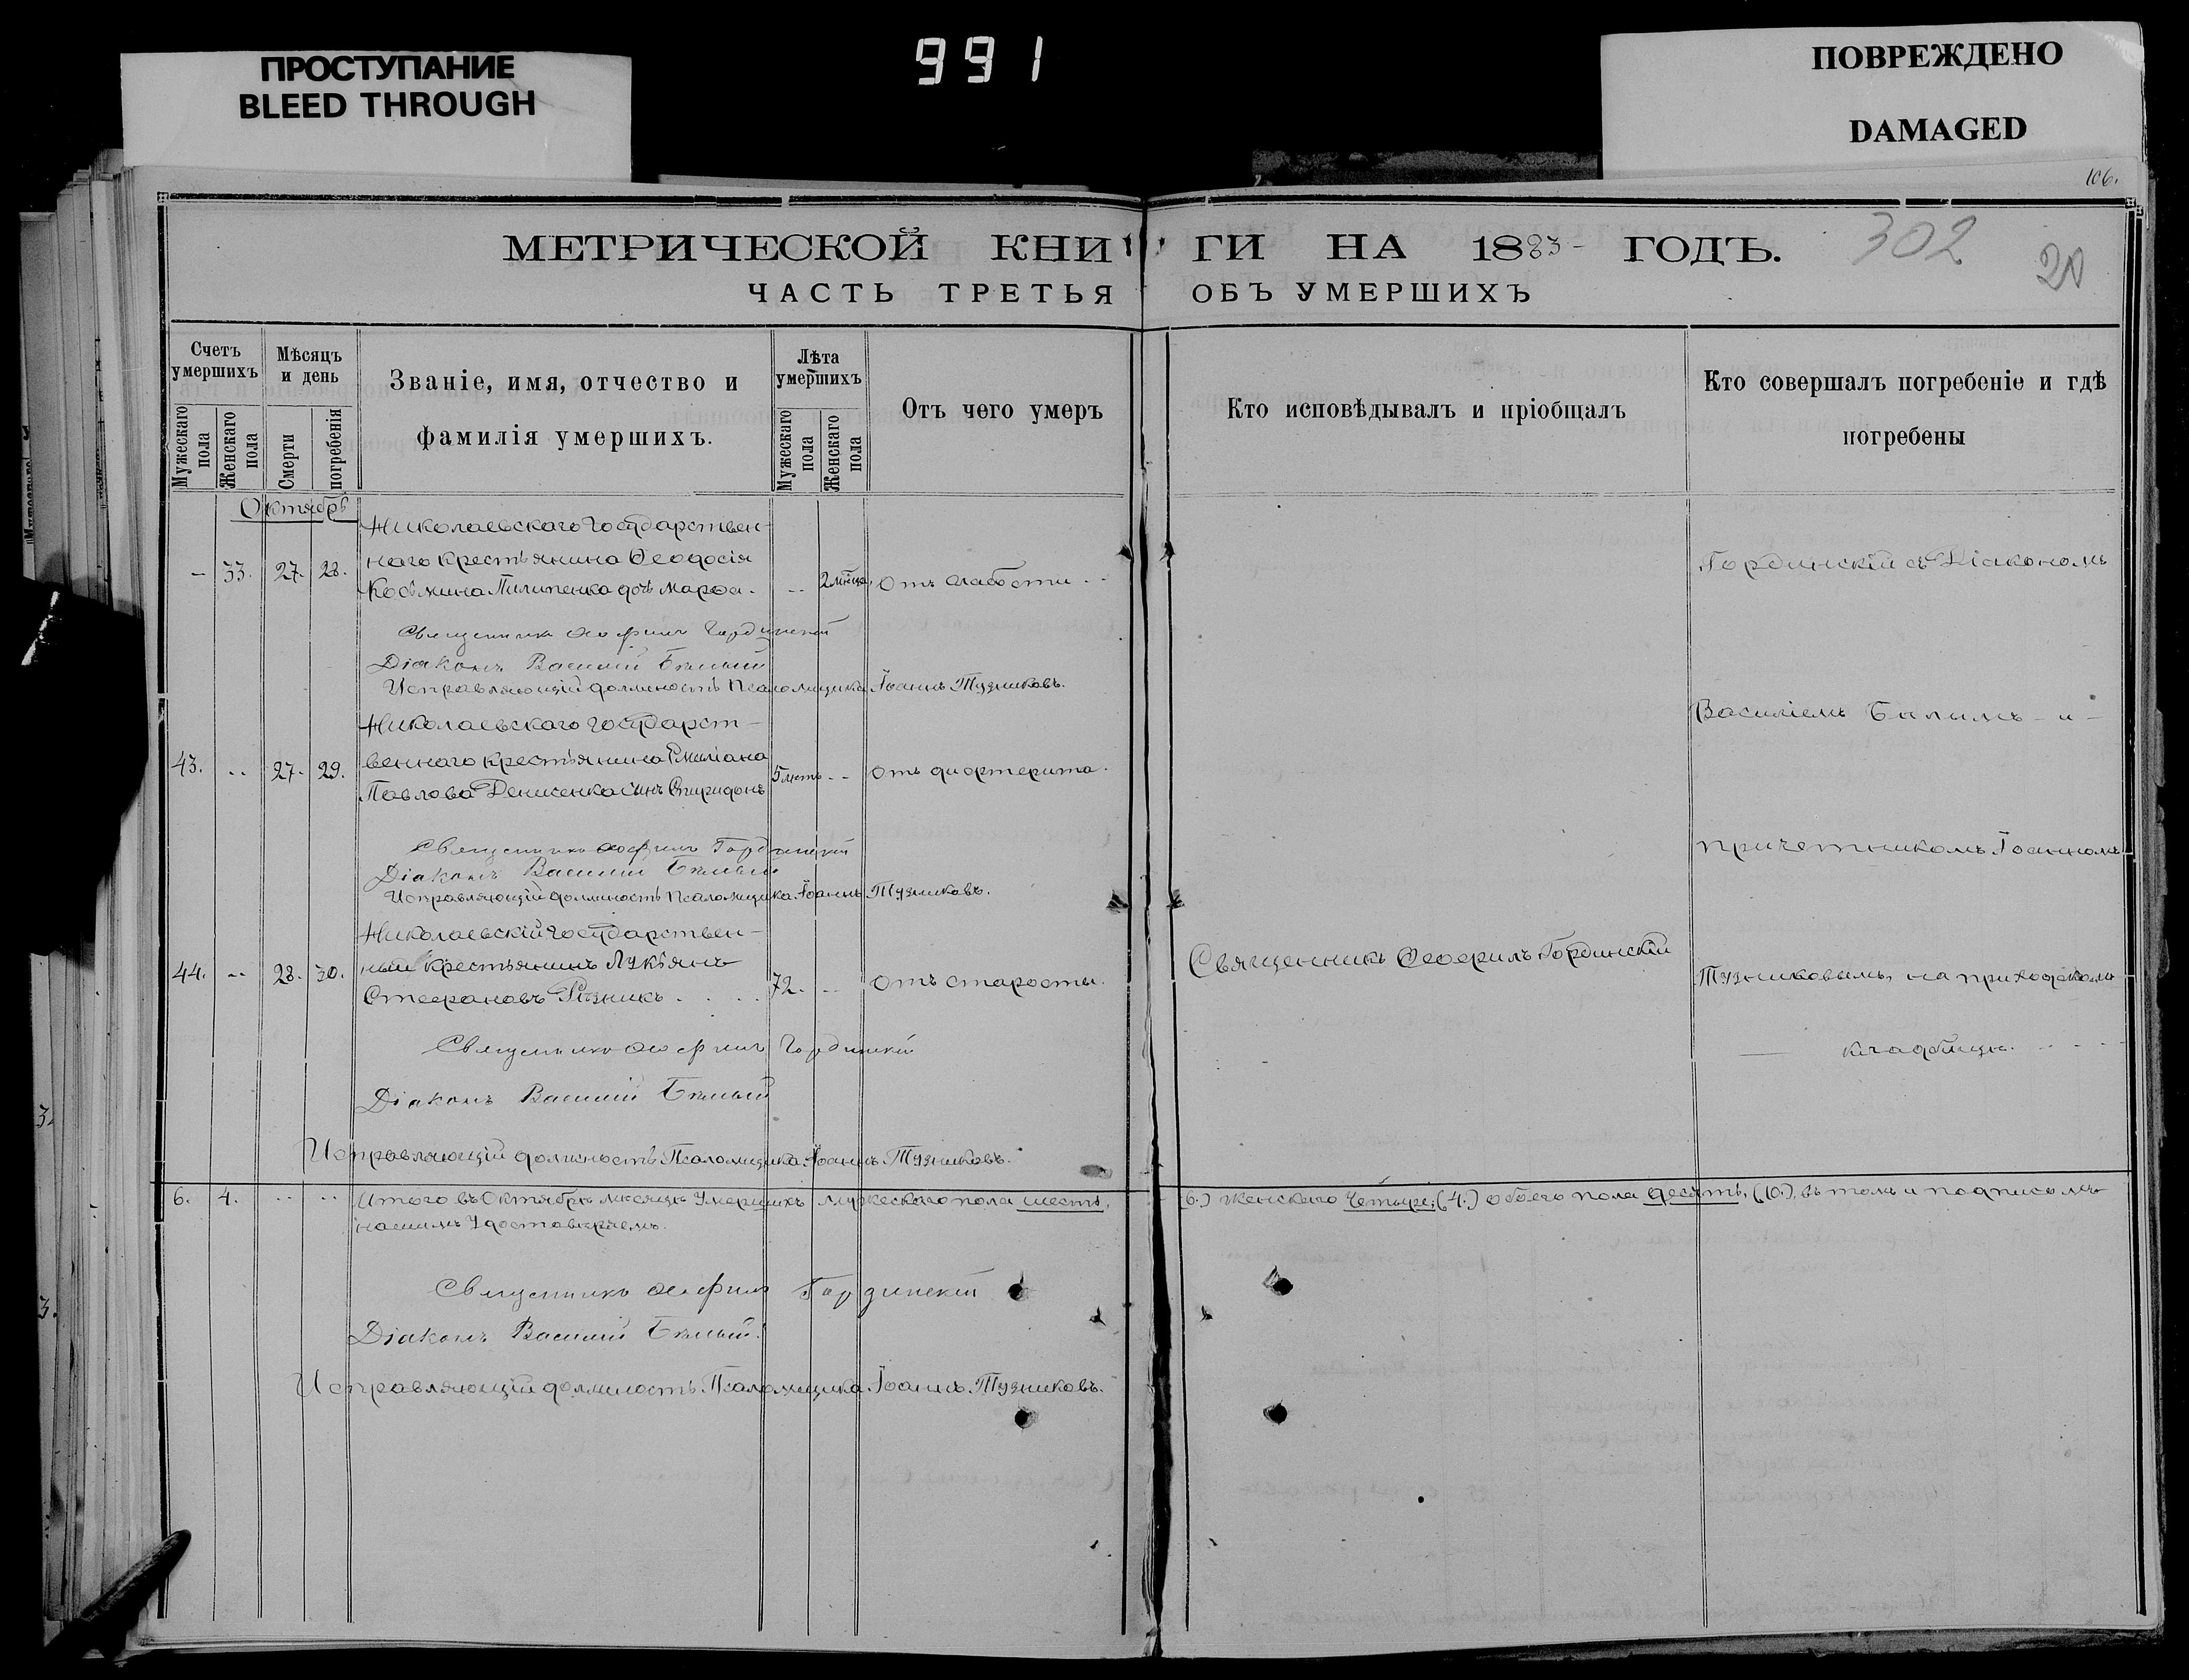 ПРОСТУПАНИЕ
BLEED THROUGH
991
ПОВРЕЖДЕНО
DAMAGED
106.
МЕТРИЧЕСКОЙ КНИГИ НА 1883 ГОДЪ.
302
20
ЧАСТЬ ТРЕТЬЯ ОБЪ УМЕРШИХЪ
Счетъ умершихъ
Мужескаго пола
Женскаго пола
Мѣсяцъ и день
Смерти
погребенія
Званіе, имя, отчество и
фамилія умершихъ.
Лѣта умершихъ
Мужескаго пола
Женскаго пола
Отъ чего умеръ
Кто исповѣдывалъ и пріобщалъ
Кто совершалъ погребеніе и гдѣ
погребены
Октябрь
Николаевскаго Государствен-
– 33. 27. 28. наго крестьянина Ѳеодосія
Косьмина Пилипенка дочь Марѳа. -- 2 мѣсяца, Отъ слабости.
Гординскій съ Діакономъ
Священникъ Ѳеофилъ Гординскій
Діаконъ Василій Бѣлый
Исправляющій должность Псаломщика Іоаннъ Тузниковъ.
Николаевскаго Государст-
Василіемъ Бѣлымъ - и -
43. -- 27. 29. веннаго крестьянина Емиліана
Павлова Денисенка сынъ Спиридонъ 5 лѣтъ -- Отъ дифтерита.
Священникъ Ѳеофилъ Гординскій
Діаконъ Василій Бѣлый
Исправляющій должность Псаломщика Іоаннъ Тузниковъ.
причетникомъ Іоанномъ
Николаевскій Государствен-
44. -- 28. 30. ный крестьянинъ Лукьянъ
Стефановъ Рѣзникъ 72. -- Отъ старости.
Священникъ Ѳеофилъ Гординскій
Тузниковымъ, на приходскомъ
кладбищѣ.
Священникъ Ѳеофилъ Гординскій
Діаконъ Василій Бѣлый
Исправляющій должность Псаломщика Іоаннъ Тузниковъ.
6. 4. -- -- Итого въ Октябрѣ мѣсяцѣ Умершихъ мужескаго пола шесть, (6.) женскаго четыре, (4.) обоего пола десять, (10.), въ томъ и подписомъ
нашимъ Удостовѣряемъ.
Священникъ Ѳеофилъ Гординскій
Діаконъ Василій Бѣлый.
Исправляющій должность Псаломщика Іоаннъ Тузниковъ.